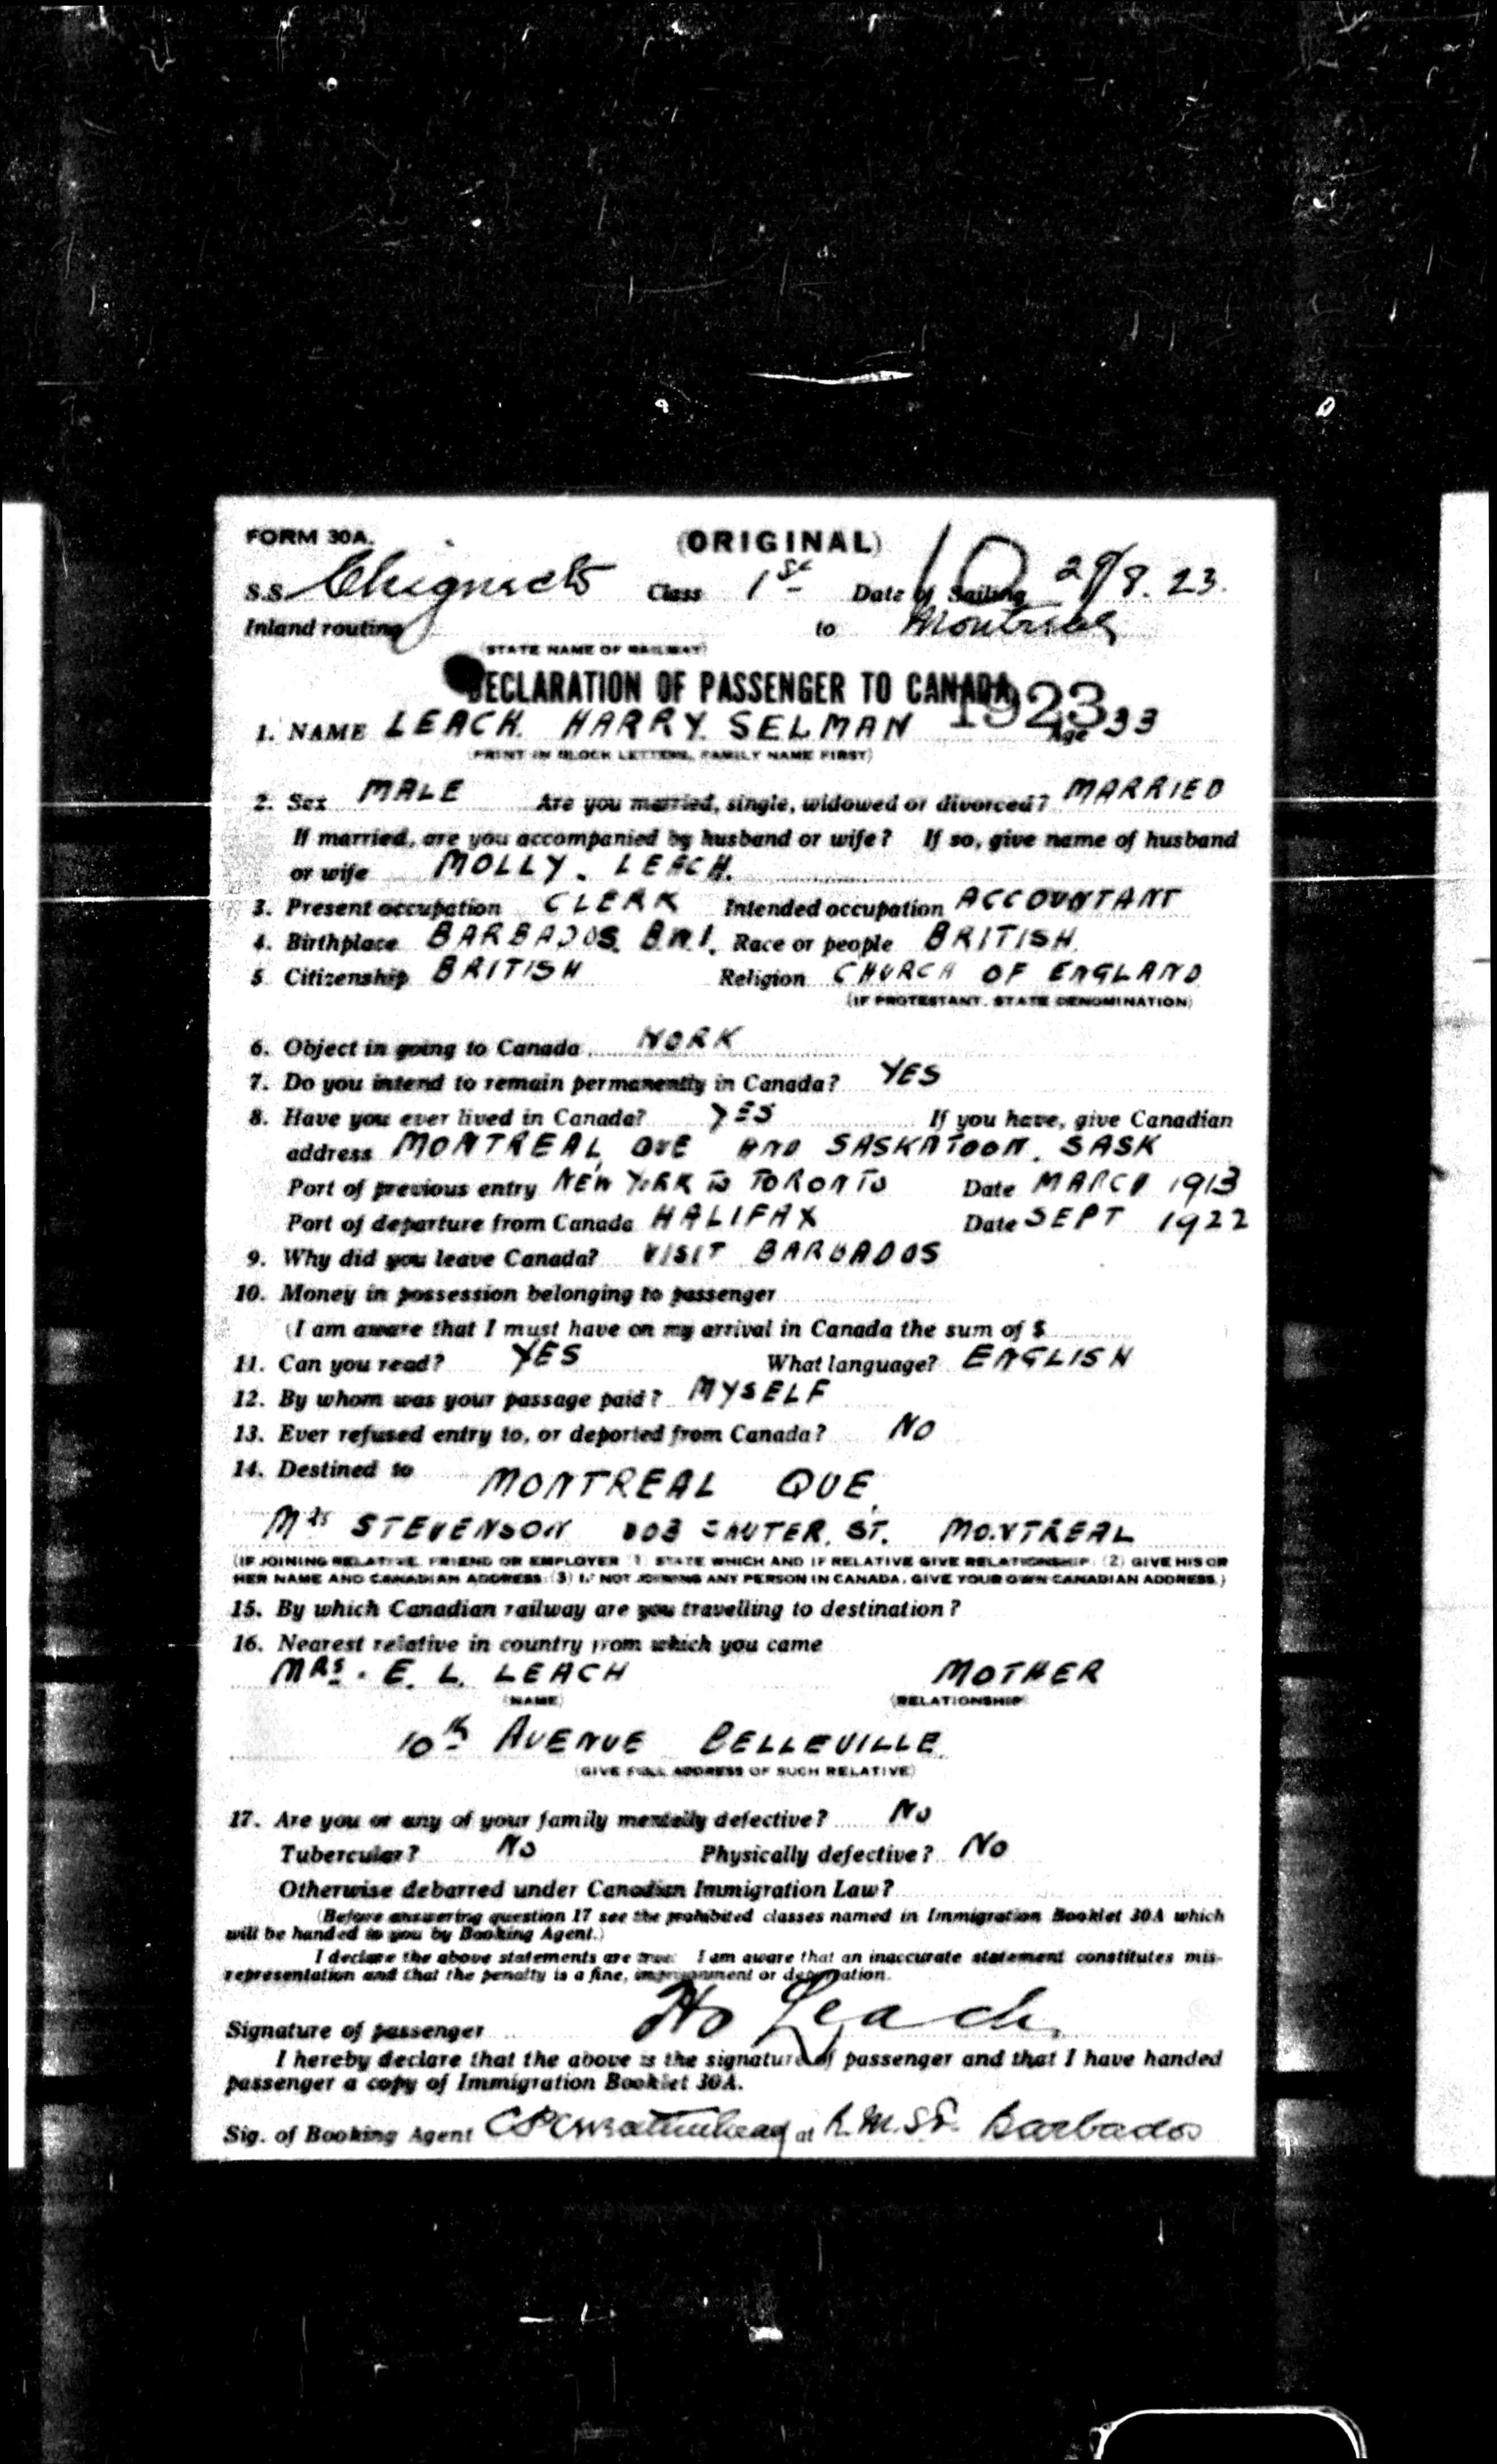 FORM 30A. (ORIGINAL) 10
S.S. Chignecto Class 1st Date of Sailing 29/8.23.
Inland routing to Montreal
(STATE NAME OF RAILWAY)
DECLARATION OF PASSENGER TO CANADA 1923
1. NAME LEACH. HARRY. SELMAN Age 33
(PRINT IN BLOCK LETTERS, FAMILY NAME FIRST)
2. Sex MALE Are you married, single, widowed or divorced? MARRIED
If married, are you accompanied by husband or wife? If so, give name of husband
or wife MOLLY. LEACH.
3. Present occupation CLERK Intended occupation ACCOUNTANT
4. Birthplace BARBADOS. B.W.I. Race or people BRITISH.
5 Citizenship BRITISH Religion CHURCH OF ENGLAND
(IF PROTESTANT, STATE DENOMINATION)
6. Object in going to Canada WORK
7. Do you intend to remain permanently in Canada? YES
8. Have you ever lived in Canada? YES If you have, give Canadian
address MONTREAL, QUE AND SASKATOON. SASK
Port of previous entry NEW YORK TO TORONTO Date MARCH 1913
Port of departure from Canada HALIFAX Date SEPT 1922
9. Why did you leave Canada? VISIT BARBADOS
10. Money in possession belonging to passenger
(I am aware that I must have on my arrival in Canada the sum of $
11. Can you read? YES What language? ENGLISH
12. By whom was your passage paid? MYSELF
13. Ever refused entry to, or deported from Canada? NO
14. Destined to MONTREAL QUE,
Mrs STEVENSON ST. MONTREAL
(IF JOINING RELATIVE, FRIEND OR EMPLOYER (1) STATE WHICH AND IF RELATIVE GIVE RELATIONSHIP. (2) GIVE HIS OR
HER NAME AND CANADIAN ADDRESS. (3) IF NOT JOINING ANY PERSON IN CANADA, GIVE YOUR OWN CANADIAN ADDRESS.)
15. By which Canadian railway are you travelling to destination?
16. Nearest relative in country from which you came
MRS. E. L. LEACH MOTHER
(NAME) (RELATIONSHIP)
10th AVENUE BELLEVILLE.
(GIVE FULL ADDRESS OF SUCH RELATIVE)
17. Are you or any of your family mentally defective? No
Tubercular? No Physically defective? No
Otherwise debarred under Canadian Immigration Law?
(Before answering question 17 see the prohibited classes named in Immigration Booklet 30A which
will be handed to you by Booking Agent.)
I declare the above statements are true. I am aware that an inaccurate statement constitutes mis-
representation and that the penalty is a fine, imprisonment or deportation.
Signature of passenger Leach.
I hereby declare that the above is the signature of passenger and that I have handed
passenger a copy of Immigration Booklet 30A.
Sig. of Booking Agent at R.M.S.P. Barbados